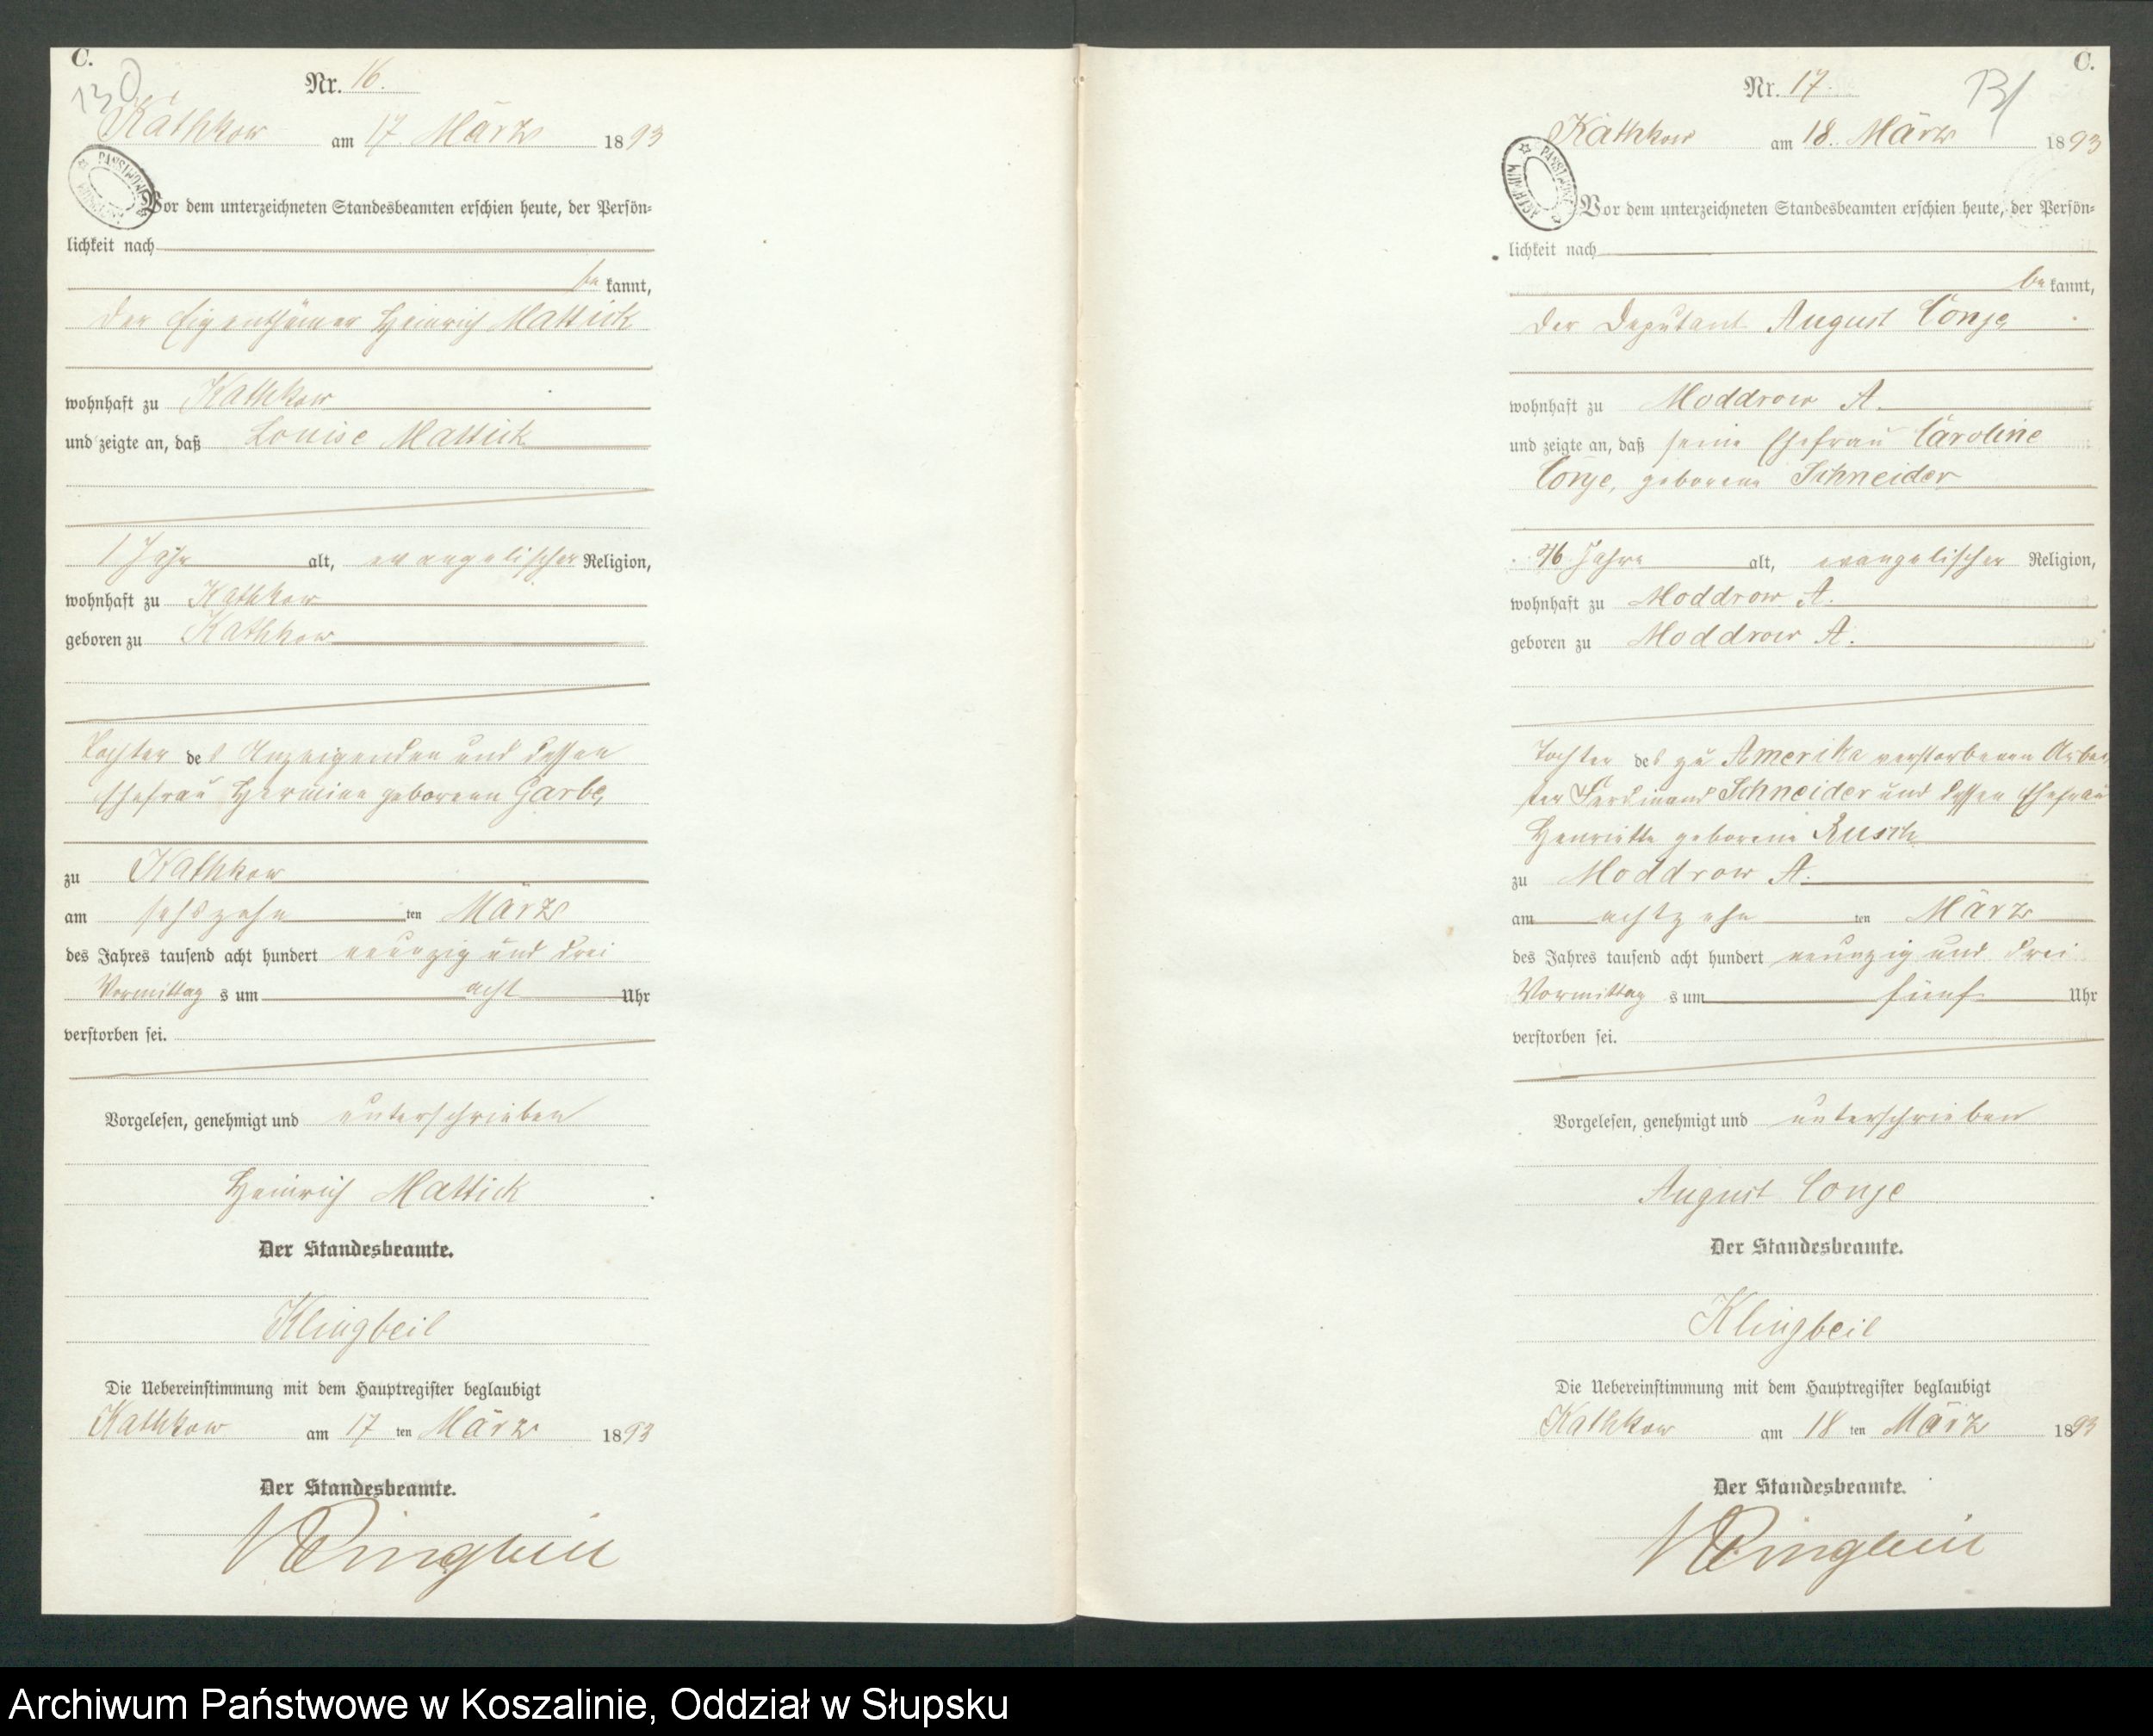 C.
130
Nr. 16.
Kathkow am 17. März 1893
Vor dem unterzeichneten Standesbeamten erschien heute, der Persön-
lichkeit nach
bekannt,
der Eigenthümer Heinrich Mattick
wohnhaft zu Kathkow
und zeigte an, daß Louise Mattick
1 Jahr alt, evangelischer Religion,
wohnhaft zu Kathkow
geboren zu Kathkow
Tochter des Anzeigenden und dessen
Ehefrau Hermine geborenen Garbe,
zu Kathkow
am sechszehn ten März
des Jahres tausend acht hundert neunzig und drei
Vormittags um acht Uhr
verstorben sei.
Vorgelesen, genehmigt und unterschrieben
Heinrich Mattick
Der Standesbeamte.
Klingbeil
Die Uebereinstimmung mit dem Hauptregister beglaubigt
Kathkow am 17 ten März 1893
Der Standesbeamte.
Klingbeil
C.
131
Nr. 17.
Kathkow am 18. März 1893
Vor dem unterzeichneten Standesbeamten erschien heute, der Persön-
lichkeit nach
bekannt,
der Deputant August Conje
wohnhaft zu Moddrow A.
und zeigte an, daß seine Ehefrau Caroline
Conje, geborene Schneider
46 Jahre alt, evangelischer Religion,
wohnhaft zu Moddrow A.
geboren zu Moddrow A.
Tochter des zu Amerika verstorbenen Arbei
ter Ferdinand Schneider und dessen Ehefrau
Henriette geborene Rusch
zu Moddrow A.
am achtzehn ten März
des Jahres tausend acht hundert neunzig und drei
Vormittags um fünf Uhr
verstorben sei.
Vorgelesen, genehmigt und unterschrieben
August Conje
Der Standesbeamte.
Klingbeil
Die Uebereinstimmung mit dem Hauptregister beglaubigt
Kathkow am 18 ten März 1893
Der Standesbeamte.
Klingbeil
Archiwum Państwowe w Koszalinie, Oddział w Słupsku